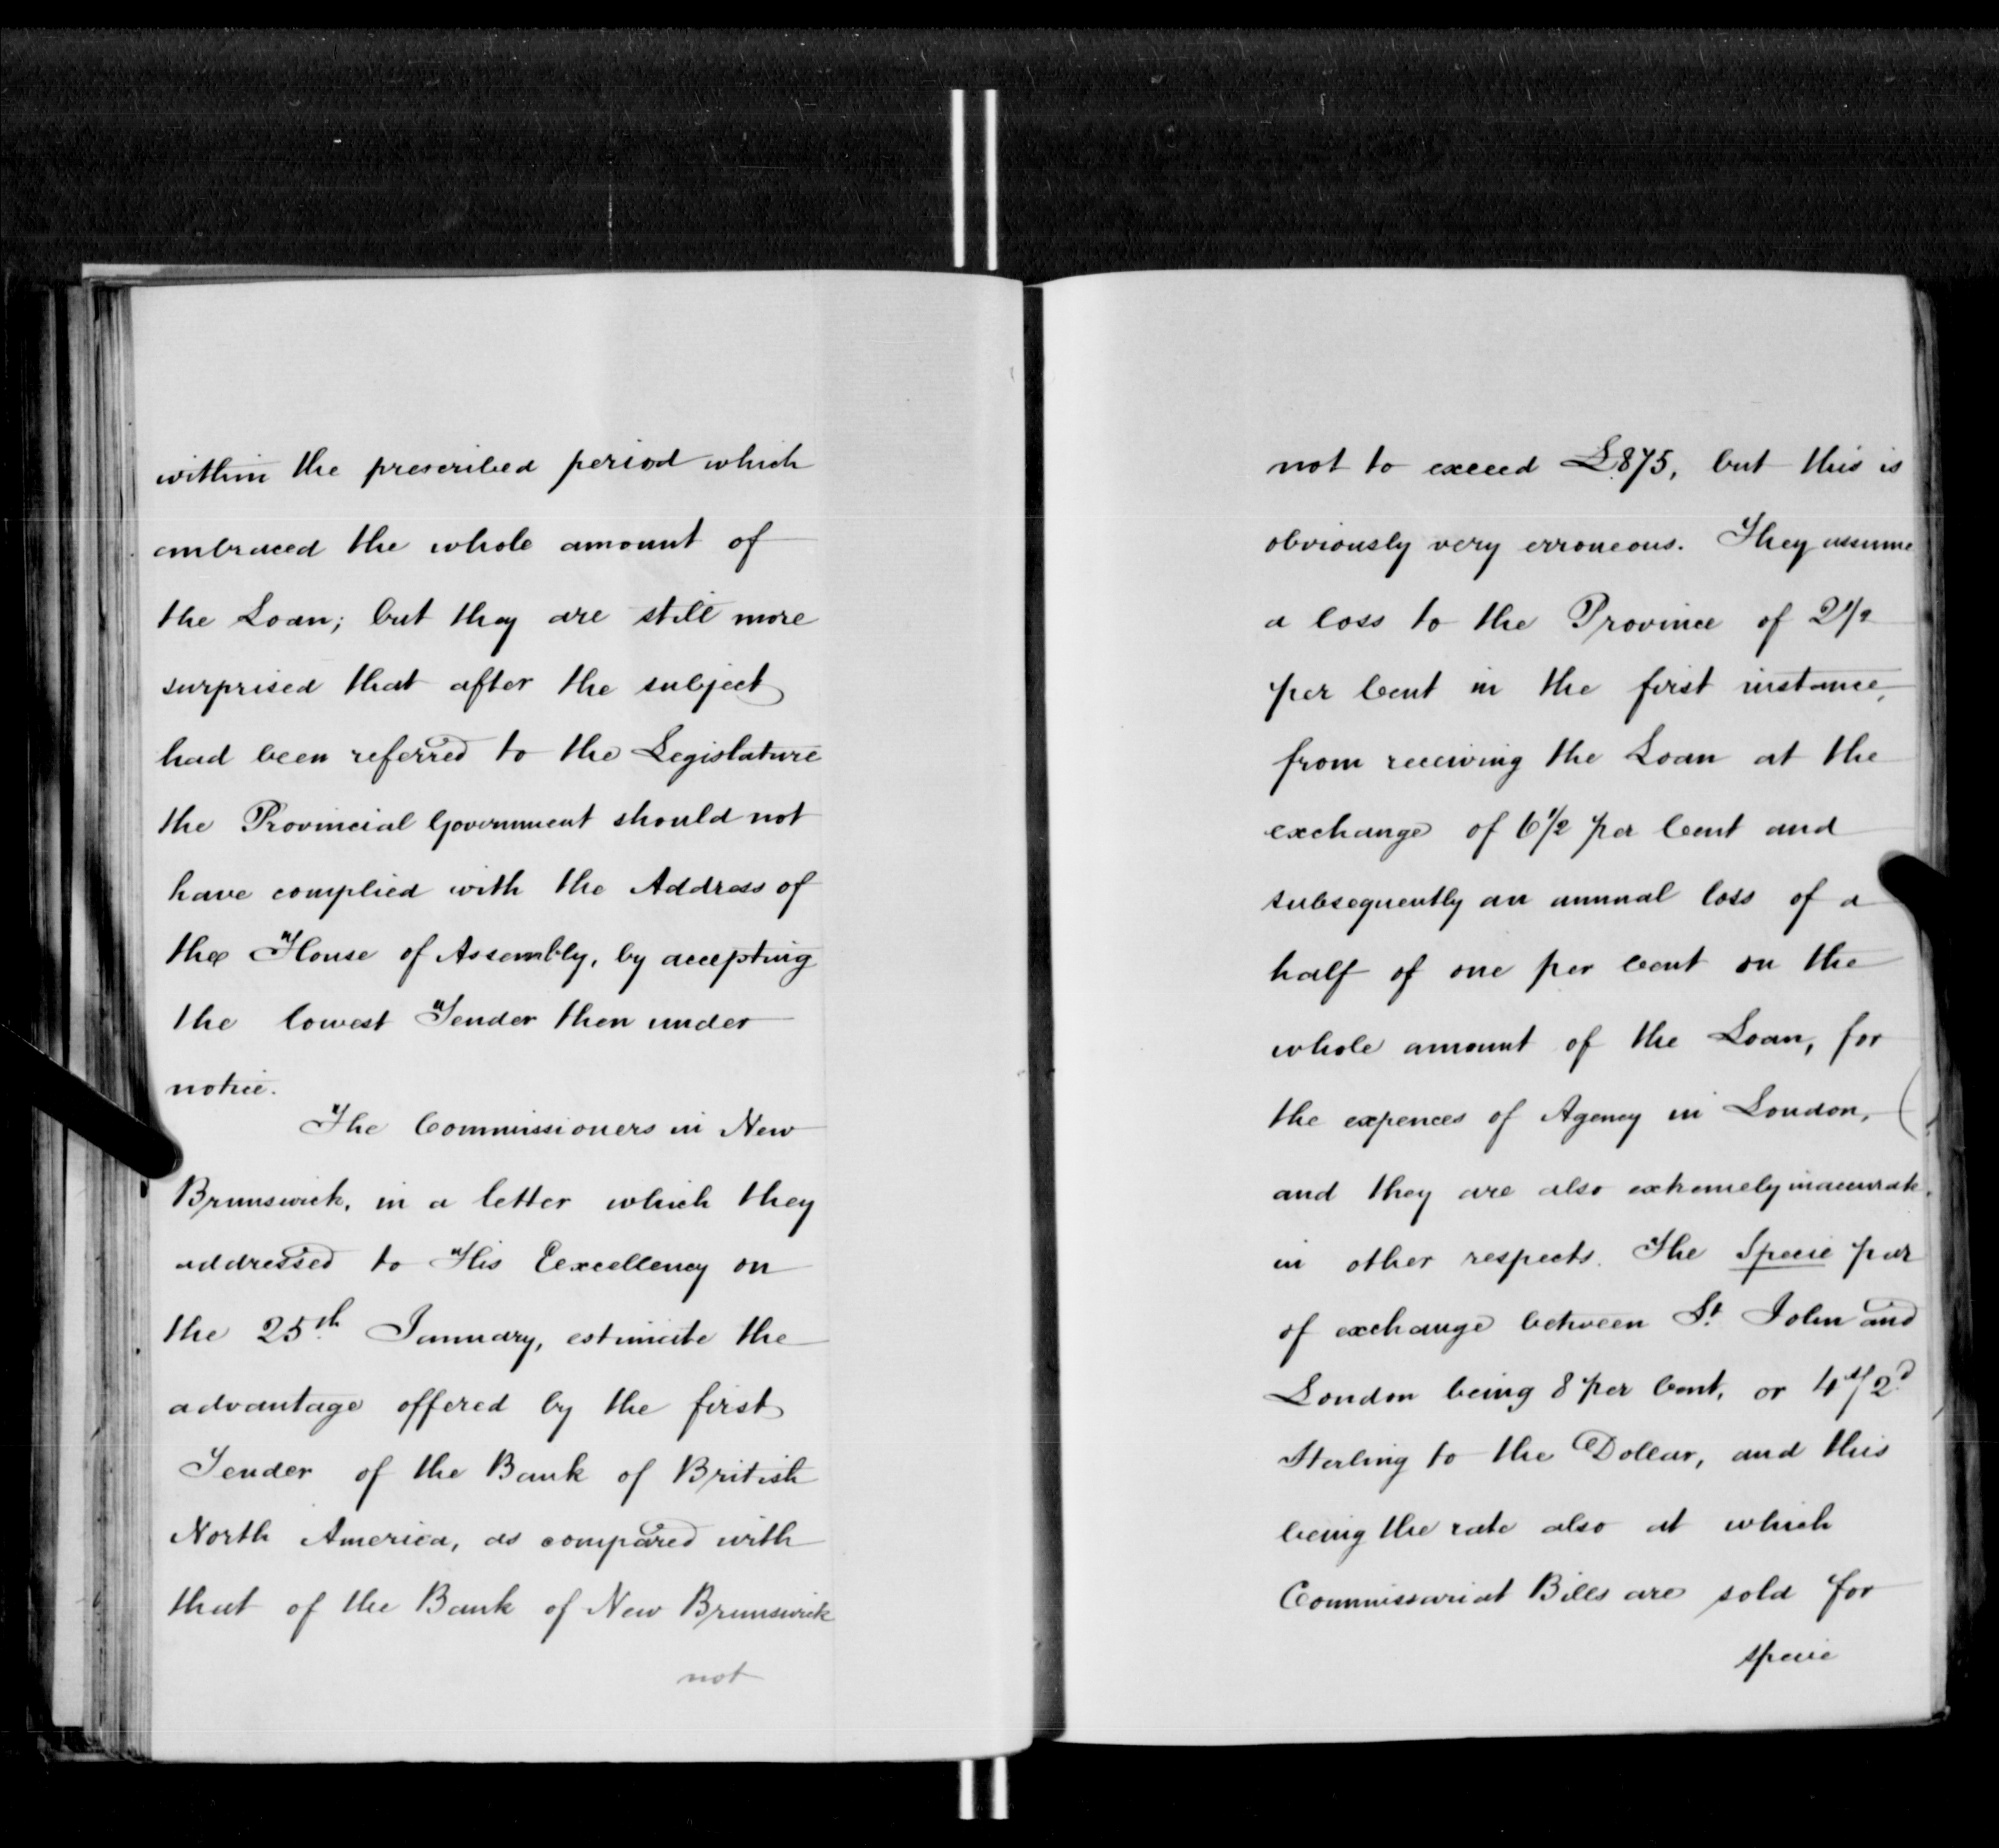 within the prescribed period which
embraced the whole amount of
the Loan; but they are still more
surprised that after the subject
had been referred to the Legislature
the Provincial Government should not
have complied with the Address of
the House of Assembly, by accepting
the lowest Tender then under
notice.
The Commissioners in New
Brunswick, in a letter which they
addressed to His Excellency on
the 25th January, estimate the
advantage offered by the first
Tender of the Bank of British
North America, as compared with
that of the Bank of New Brunswick
not
not to exceed £875, but this is
obviously very erroneous. They assume
a loss to the Province of 2 1/2
per Cent in the first instance,
from receiving the Loan at the
exchange of 6 1/2 per Cent and
subsequently an annual loss of a
half of one per Cent on the
whole amount of the Loan, for
the expences of Agency in London,
and they are also extremely inaccurate
in other respects. The Specie par
of exchange between St. John and
London being 8 per Cent, or 4s/2d
Sterling to the Dollar, and this
being the rate also at which
Commissariat Bills are sold for
specie